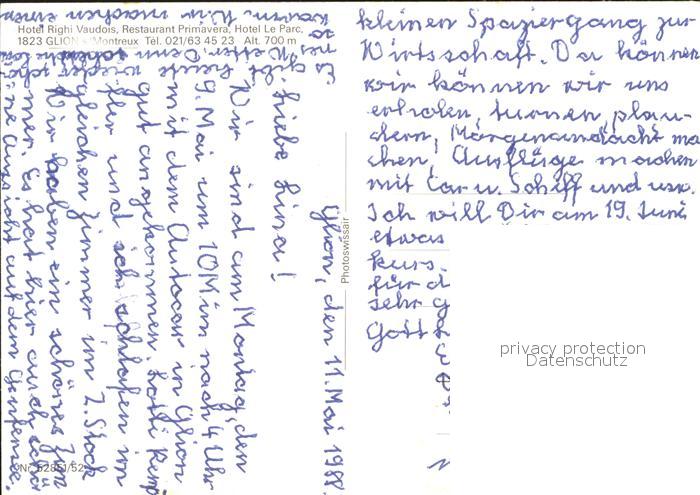 Hotel Righi Vaudois, Restaurant Primavera, Hotel Le Parc,
1823 GLION s. Montreux Tél. 021/63 45 23 Alt. 700 m
Glion, den 11. Mai 1988.
Liebe Lina!
Wir sind am Montag, den
9. Mai um 10 Min nach 4 Uhr
mit dem Autocar in Glion
gut angekommen.
und ich schlafen im
gleichen Zimmer im 2. Stock
Wir haben ein schönes Zim
mer. Es hat hier auch schö
ne Aussicht auf dem Genfersee.
Es gibt heute wieder schö
nes Wetter. Denn
warm. Wir machen einen
kleinen Spaziergang zur
Wirtschaft. Da können
wir können wir uns
erholen, turnen, plau-
dern, Morgenandacht ma
chen, Ausflüge machen
mit Car u. Schiff und usw.
Ich will Dir am 19. Juni
etwas
kurs.
für d
sehr g
Gott
Photoswissair
Nr. 52851/52
privacy protection
Datenschutz